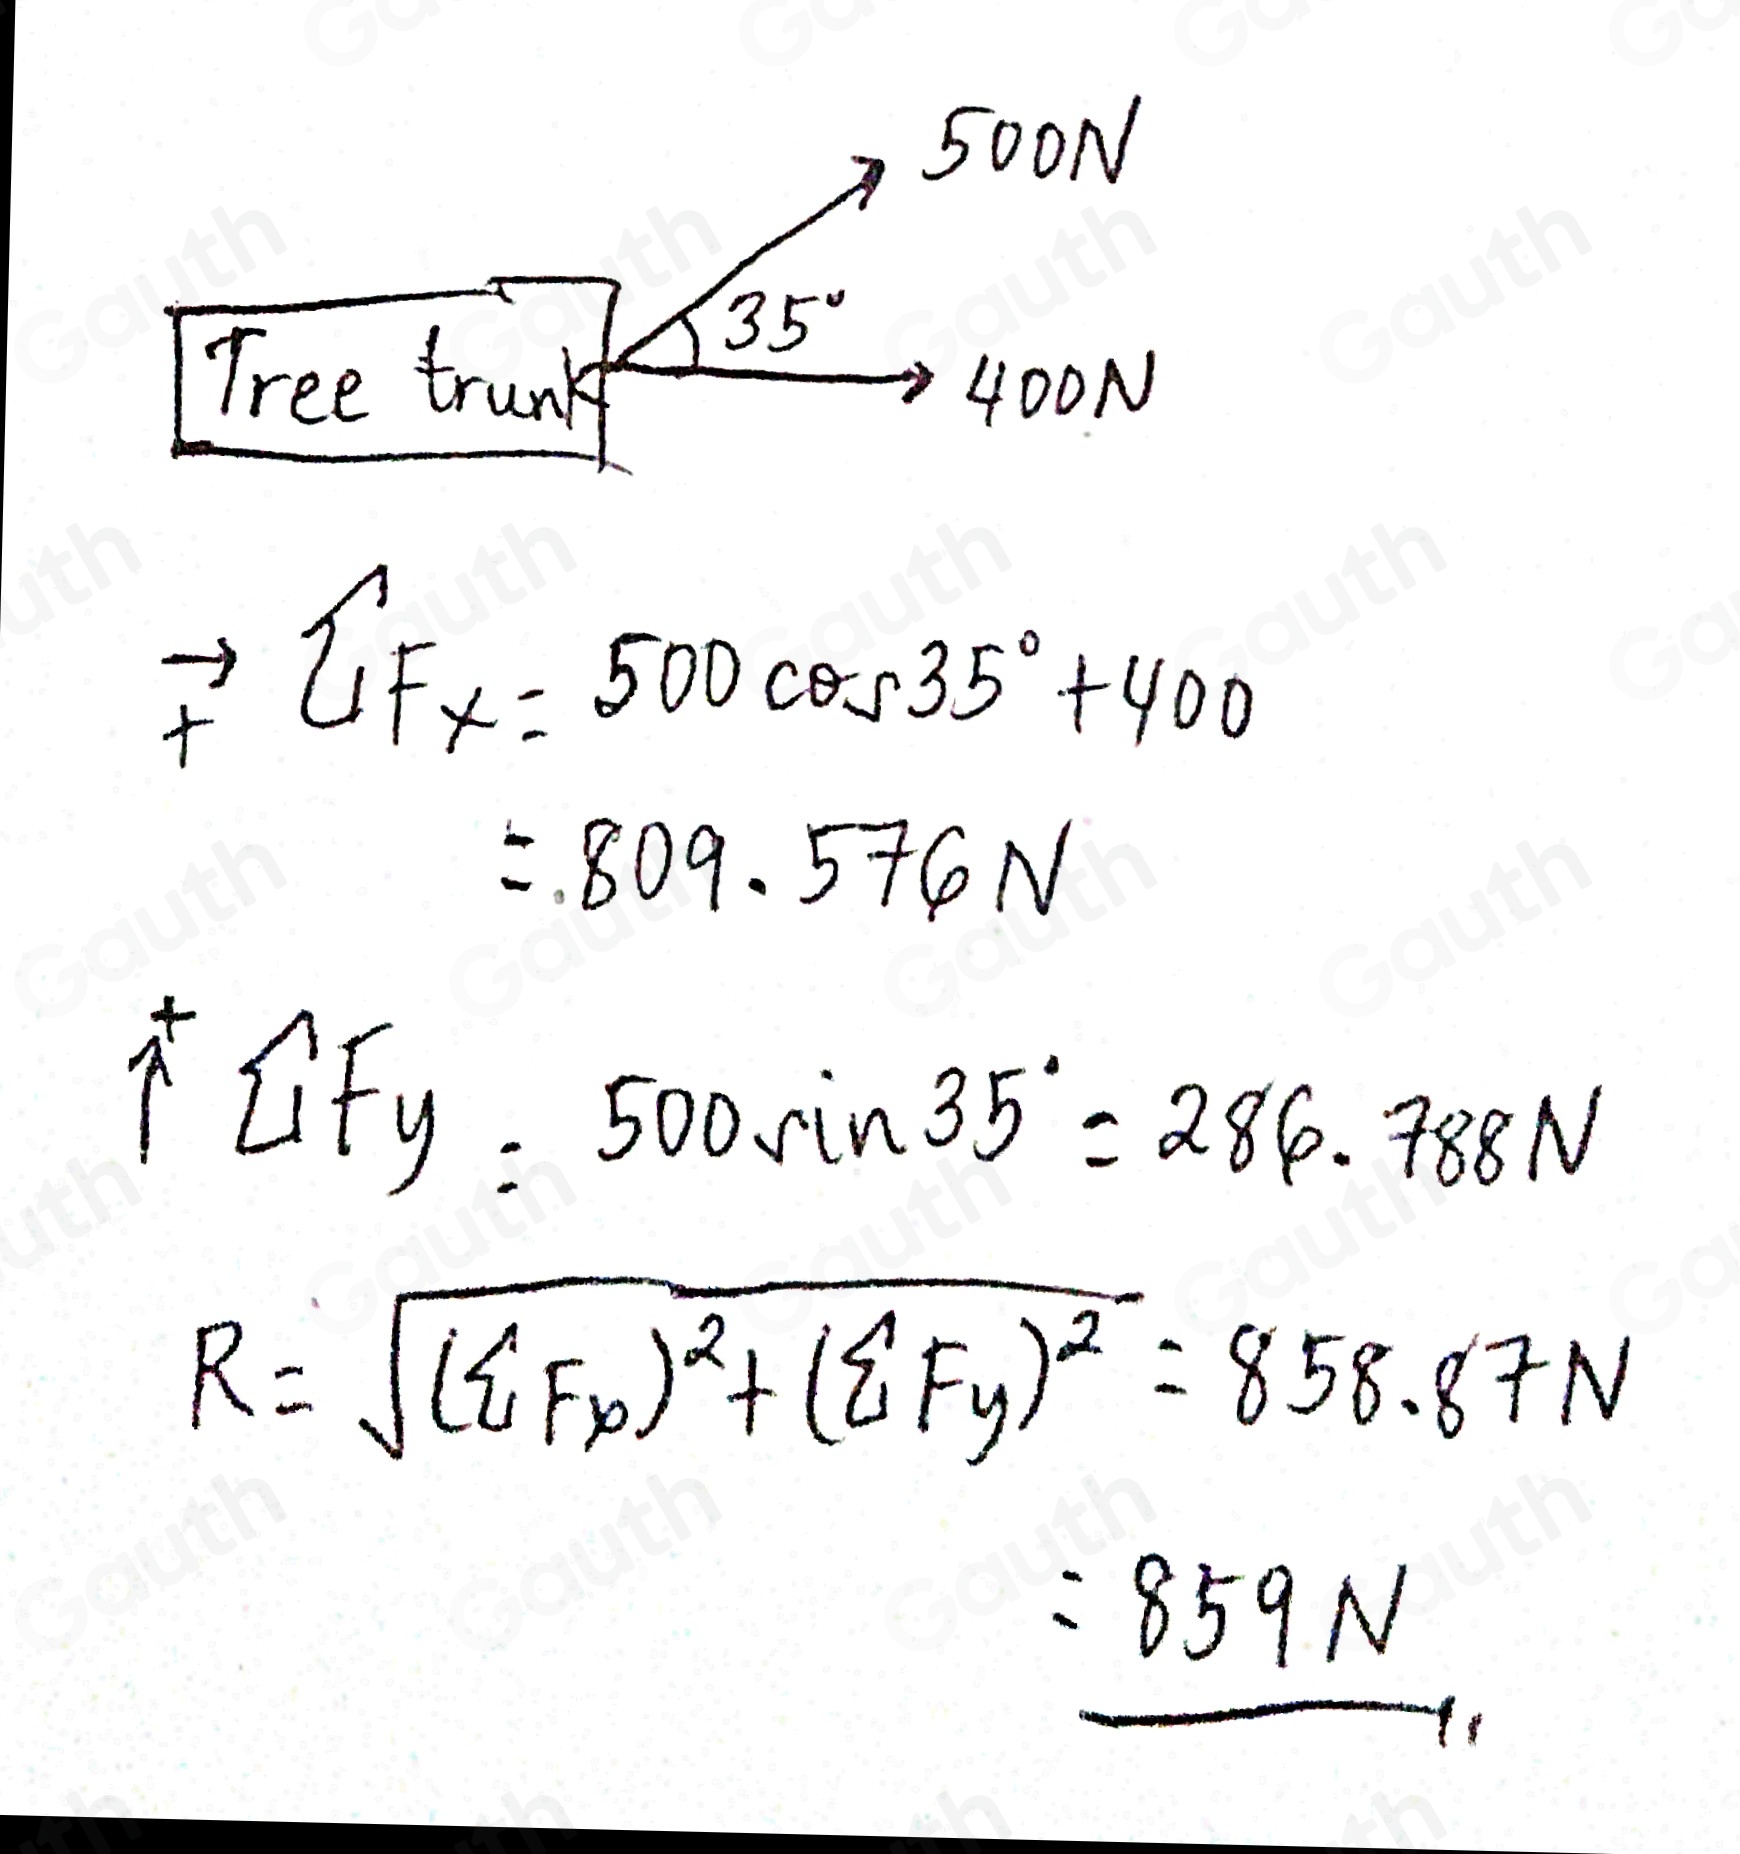 500N
35°
Tree trunk
400N
→ + ΣFx = 500 cos 35° + 400
= 809.576 N
↑+ ΣFy = 500 sin 35° = 286.788 N
R = √(ΣFx)² + (ΣFy)² = 858.87 N
= 859 N
Gauth